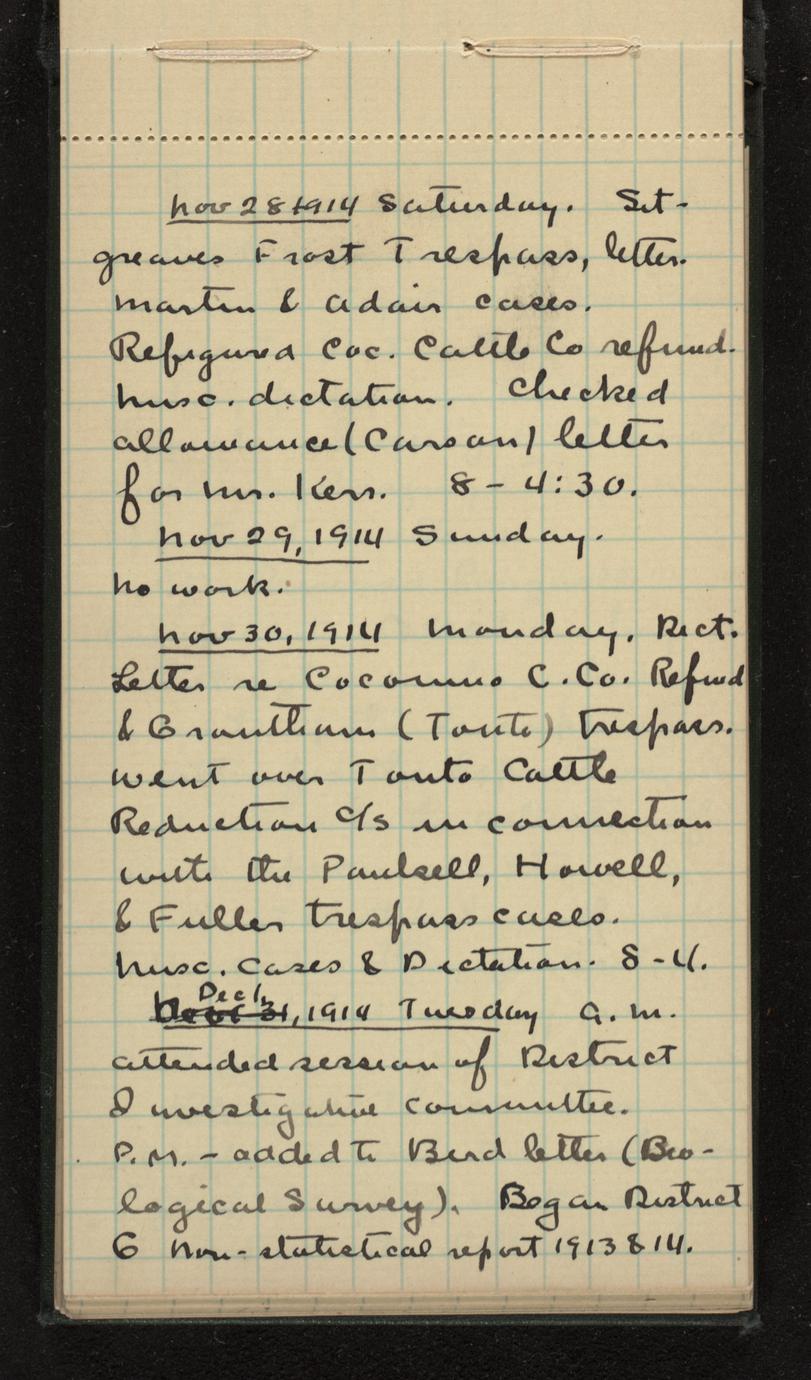 Nov 28 1914 Saturday. Sit-
greaves Frost Trespass, letter.
Martin & Adair cases.
Refigured Coc. Cattle Co refund.
Misc. dictation. Checked
allowance (Carson) letter
for Mr. Kerr. 8 - 4:30.
Nov 29, 1914 Sunday.
No work.
Nov 30, 1914 Monday. Dict.
Letter re Coconino C. Co. Refund
& Grantham (Tonto) trespass.
Went over Tonto Cattle
Reduction c/s in connection
with the Paulsell, Howell,
& Fuller trespass cases.
Misc. cases & Dictation. 8 - 4.
Dec 1, 1914 Tuesday A.M.
attended session of District
Investigative committee.
P.M. - added to Bird letter (Bio-
logical Survey). Began District
G Non-statistical report 1913 & 14.